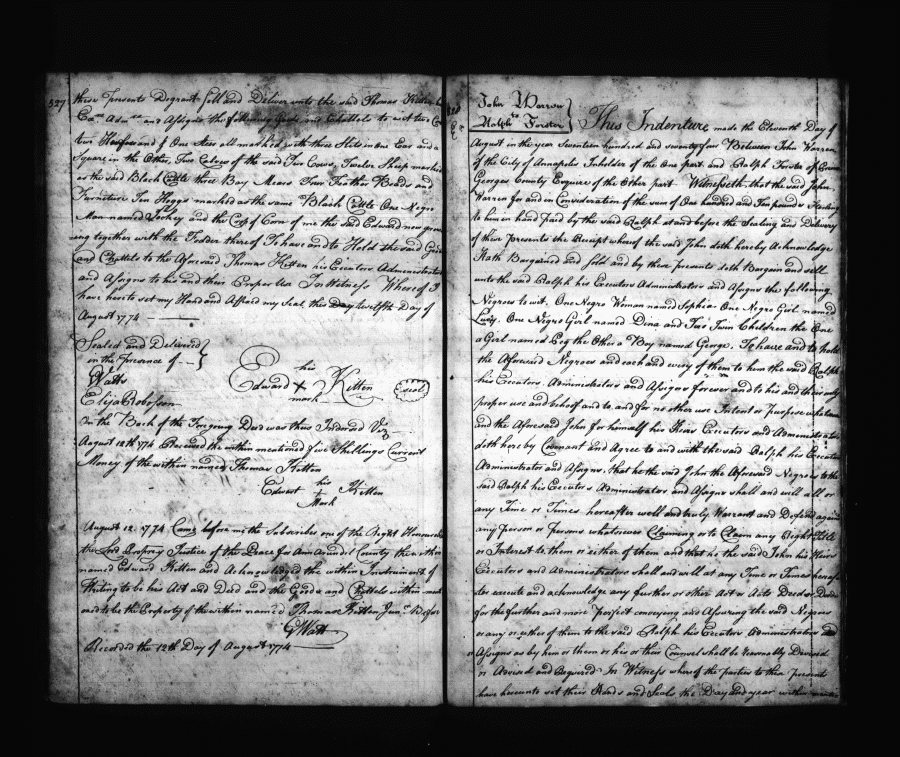 327
these Presents Degrant Sell and Deliver unto the said Thomas Kitten
Adm and Assigns the following Goods and Chattels to wit two
two Heifers and f One Steer all marked with three Slits in one Ear and a
Square in the Other, Two Calves of the said Two Cows, Twelve Sheep marked
as the said Black Cattle three Bay Mears Four Feather Beds and
Furniture Ten Hoggs marked as the same Black Cattle One Negro
Man named Jockey and the Crop of Corn of me the said Edward now grow
ing together with the Fodder thereof To have and to Hold the said Goods
and Chattels to the Aforesaid Thomas Kitten his Executors Administrators
and Assigns to his and there Proper Use In Witness Whereof I
have hereto set my Hand and Affixed my Seal this Day twelfth Day of
August 1774
Sealed and Delivered
in the Presence of
GWatts
Elijah Robosson
his
Edward + Kitten
mark
Seal
On the Back of the Foregoing Deed was thus Indorsed Viz
August 12th 1774 Received the within mentioned five Shillings Current
Money of the within named Thomas Kitten
his
Edward + Kitten
Mark
August 12. 1774 Came before me the Subscriber one of the Right Honourable
the Lord Propry Justice of the Peace for Ann Arundel County the within
named Edward Kitten and Acknowledged the within Instrument of
Writing to be his Act and Deed and the Goods and Chattels within
said to be the Property of the within named Thomas Kitten Junr Before
GWatts
Recorded the 12th Day of August 1774
John Warren
to
Ralph Forster
This Indenture made the Eleventh Day of
August in the year Seventeen hundred and seventy four Between John Warren
of the City of Annapolis Inholder of the One part and Ralph Forster of Prince
Georges County Esquire of the Other part Witnesseth that the said John
Warren for and in Consideration of the sum of One hundred and Ten pounds Sterling
to him in hand paid by the said Ralph at and before the Sealing and Delivery
of these Presents the Receipt whereof the said John doth hereby Acknowledge
Hath Bargained and Sold and by these presents doth Bargain and sell
unto the said Ralph his Executors Administrators and Assigns the following
Negroes to wit, One Negro Woman named Sophia One Negro Girl named
Lucy, One Negro Girl named Dina and Two Twin Children the One
a Girl named Eve the Other a Boy named George, To have and to hold
the Aforesaid Negroes and each and every of them to him the said Ralph
his Executors Administrators and Assigns forever and to his and their only
proper use and behoof and to and for no other use Intent or purpose whatever
and the Aforesaid John for himself his Heirs Executors and Administrators
doth hereby Covenant and Agree to and with the said Ralph his Executors
Administrators and Assigns, that he the said John the Aforesaid Negroes to the
said Ralph his Executors Administrators and Assigns shall and will all or
any Time or Times hereafter well and truly Warrant and Defend against
any person or Persons whatsoever Claiming or to Claim any Right Title
or Interest to them or either of them and that he the said John his Heirs
Executors and Administrators shall and will at any Time or Times hereaf
ter execute and acknowledge any further or other Act or Acts Deed or Deeds
for the further and more perfect conveying and Assuring the said Negroes
or any or either of them to the said Ralph his Executors Administrators and
Assigns as by him or them or his or their Counsel shall be reasonably Devised
or Advised and Required In Witness whereof the parties to these presents
have hereunto set their Hands and Seals the Day and year within